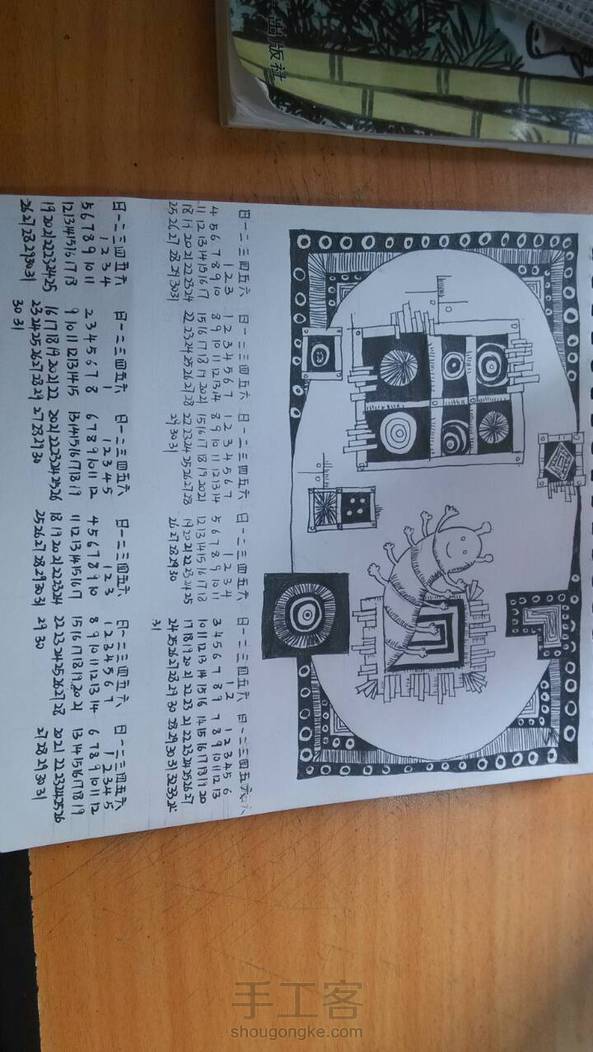 出版社
日一二三四五六
1 2 3
4 5 6 7 8 9 10
11 12 13 14 15 16 17
18 19 20 21 22 23 24
25 26 27 28 29 30 31
日一二三四五六
1 2 3 4 5 6 7
8 9 10 11 12 13 14
15 16 17 18 19 20 21
22 23 24 25 26 27 28
日一二三四五六
1 2 3 4 5 6 7
8 9 10 11 12 13 14
15 16 17 18 19 20 21
22 23 24 25 26 27 28
29 30 31
日一二三四五六
1 2 3 4
5 6 7 8 9 10 11
12 13 14 15 16 17 18
19 20 21 22 23 24 25
26 27 28 29 30
日一二三四五六
1 2
3 4 5 6 7 8 9
10 11 12 13 14 15 16
17 18 19 20 21 22 23
24 25 26 27 28 29 30
31
日一二三四五六
1 2 3 4 5 6
7 8 9 10 11 12 13
15 16 17 18 19 20
21 22 23 24 25 26 27
28 29 30 31 32 33
日一二三四五六
1 2 3 4
5 6 7 8 9 10 11
12 13 14 15 16 17 18
19 20 21 22 23 24 25
26 27 28 29 30 31
日一二三四五六
1
2 3 4 5 6 7 8
9 10 11 12 13 14 15
16 17 18 19 20 21 22
23 24 25 26 27 28 29
30 31
日一二三四五六
1 2 3 4 5
6 7 8 9 10 11 12
13 14 15 16 17 18 19
20 21 22 23 24 25 26
27 28 29 30
日一二三四五六
1 2 3
4 5 6 7 8 9 10
11 12 13 14 15 16 17
18 19 20 21 22 23 24
25 26 27 28 29 30 31
日一二三四五六
1 2 3 4 5 6 7
8 9 10 11 12 13 14
15 16 17 18 19 20 21
22 23 24 25 26 27 28
29 30
日一二三四五六
1 2 3 4 5
6 7 8 9 10 11 12
13 14 15 16 17 18 19
20 21 22 23 24 25 26
27 28 29 30 31
手工客
shougongke.com